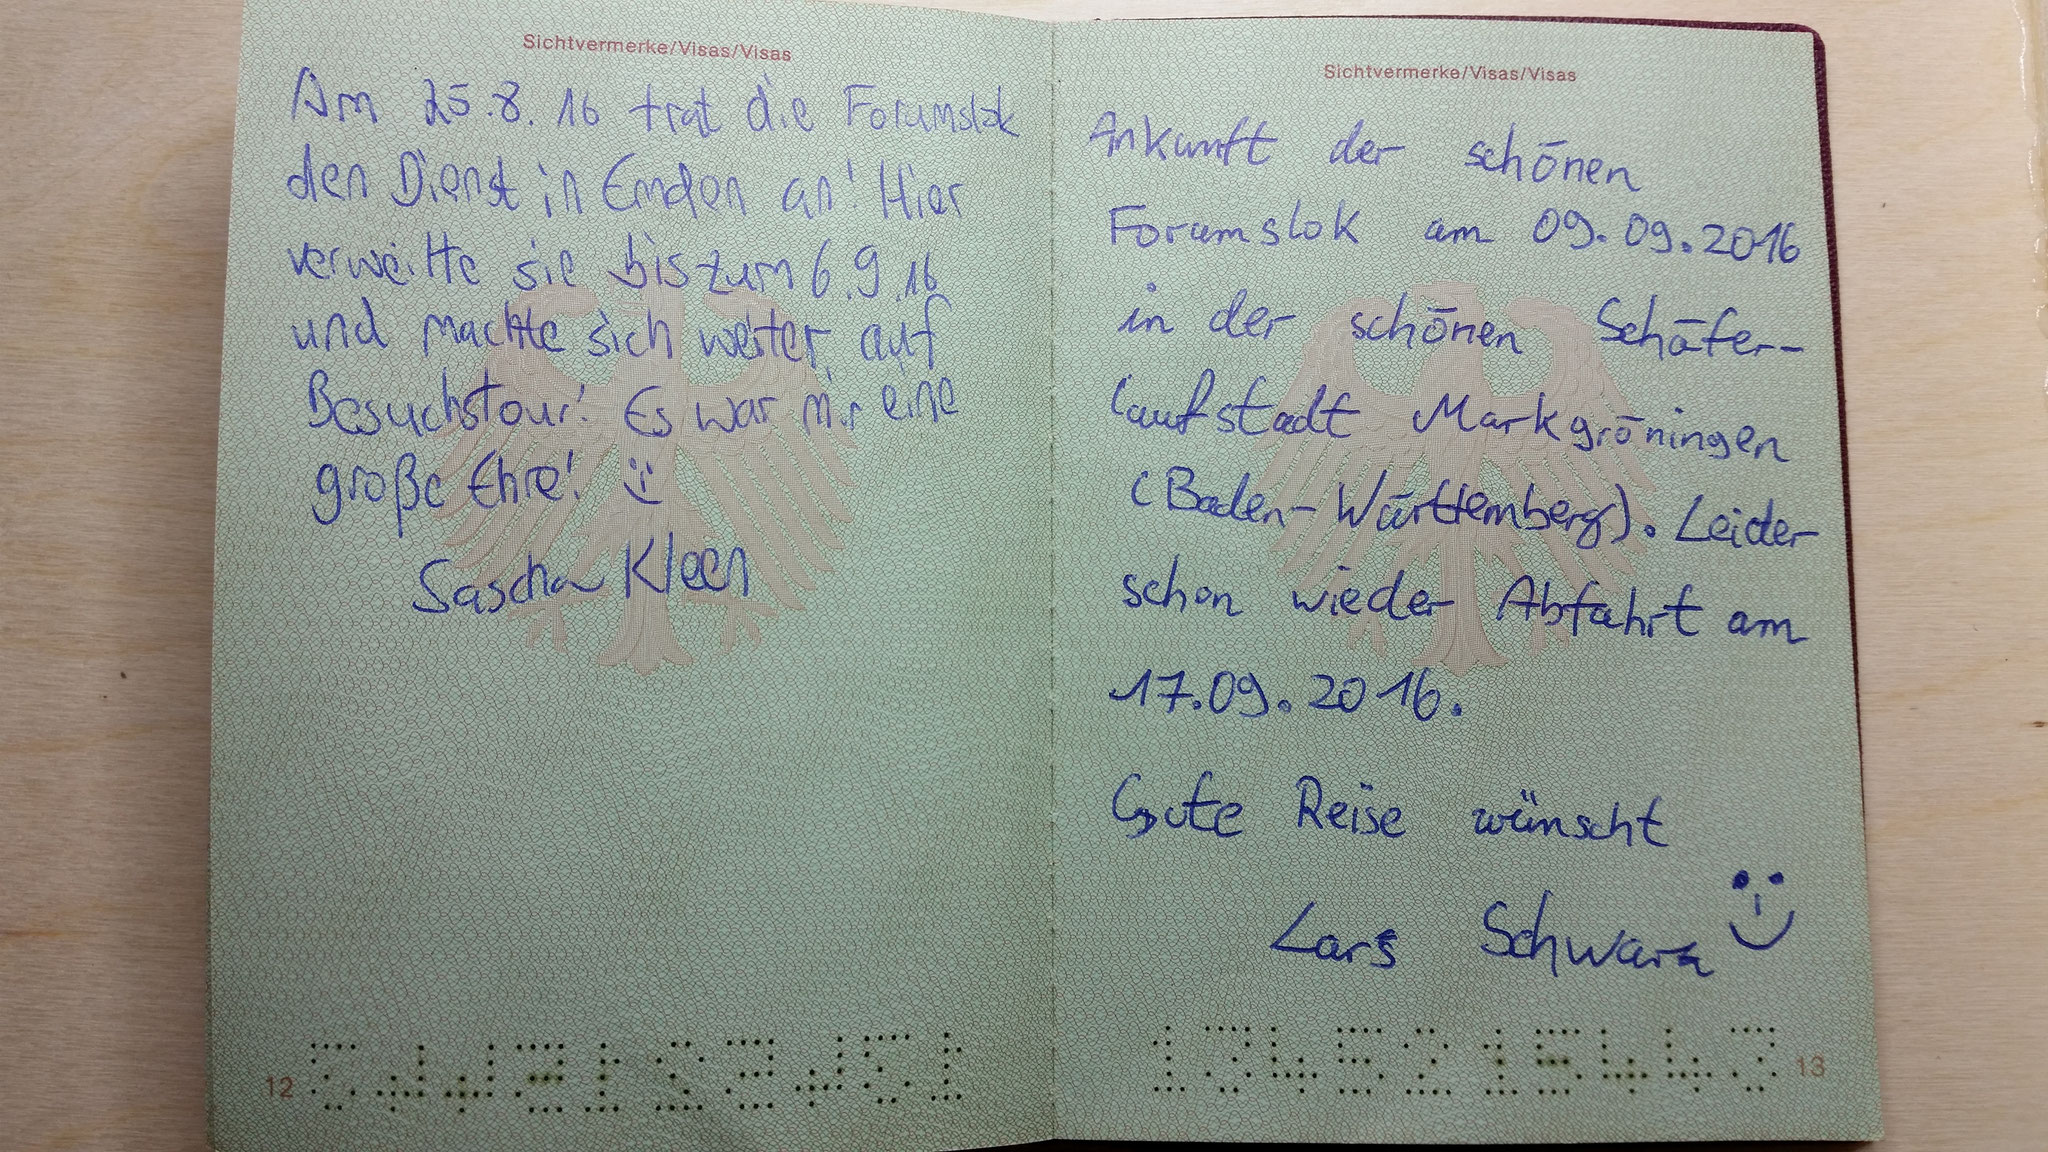 Sichtvermerke/Visas/Visas
Am 25.8.16 trat die Forumslok
den Dienst in Emden an! Hier
verweilte sie bis zum 6.9.16
und machte sich weiter auf
Besuchstour! Es war mir eine
große Ehre!
Sascha Kleen
12
Sichtvermerke/Visas/Visas
Ankunft der schönen
Forumslok am 09.09.2016
in der schönen Schäfer-
laufstadt Markgröningen
(Baden-Württemberg). Leider
schon wieder Abfahrt am
17.09.2016.
Gute Reise wünscht
Lars Schwarz
1345215443
13